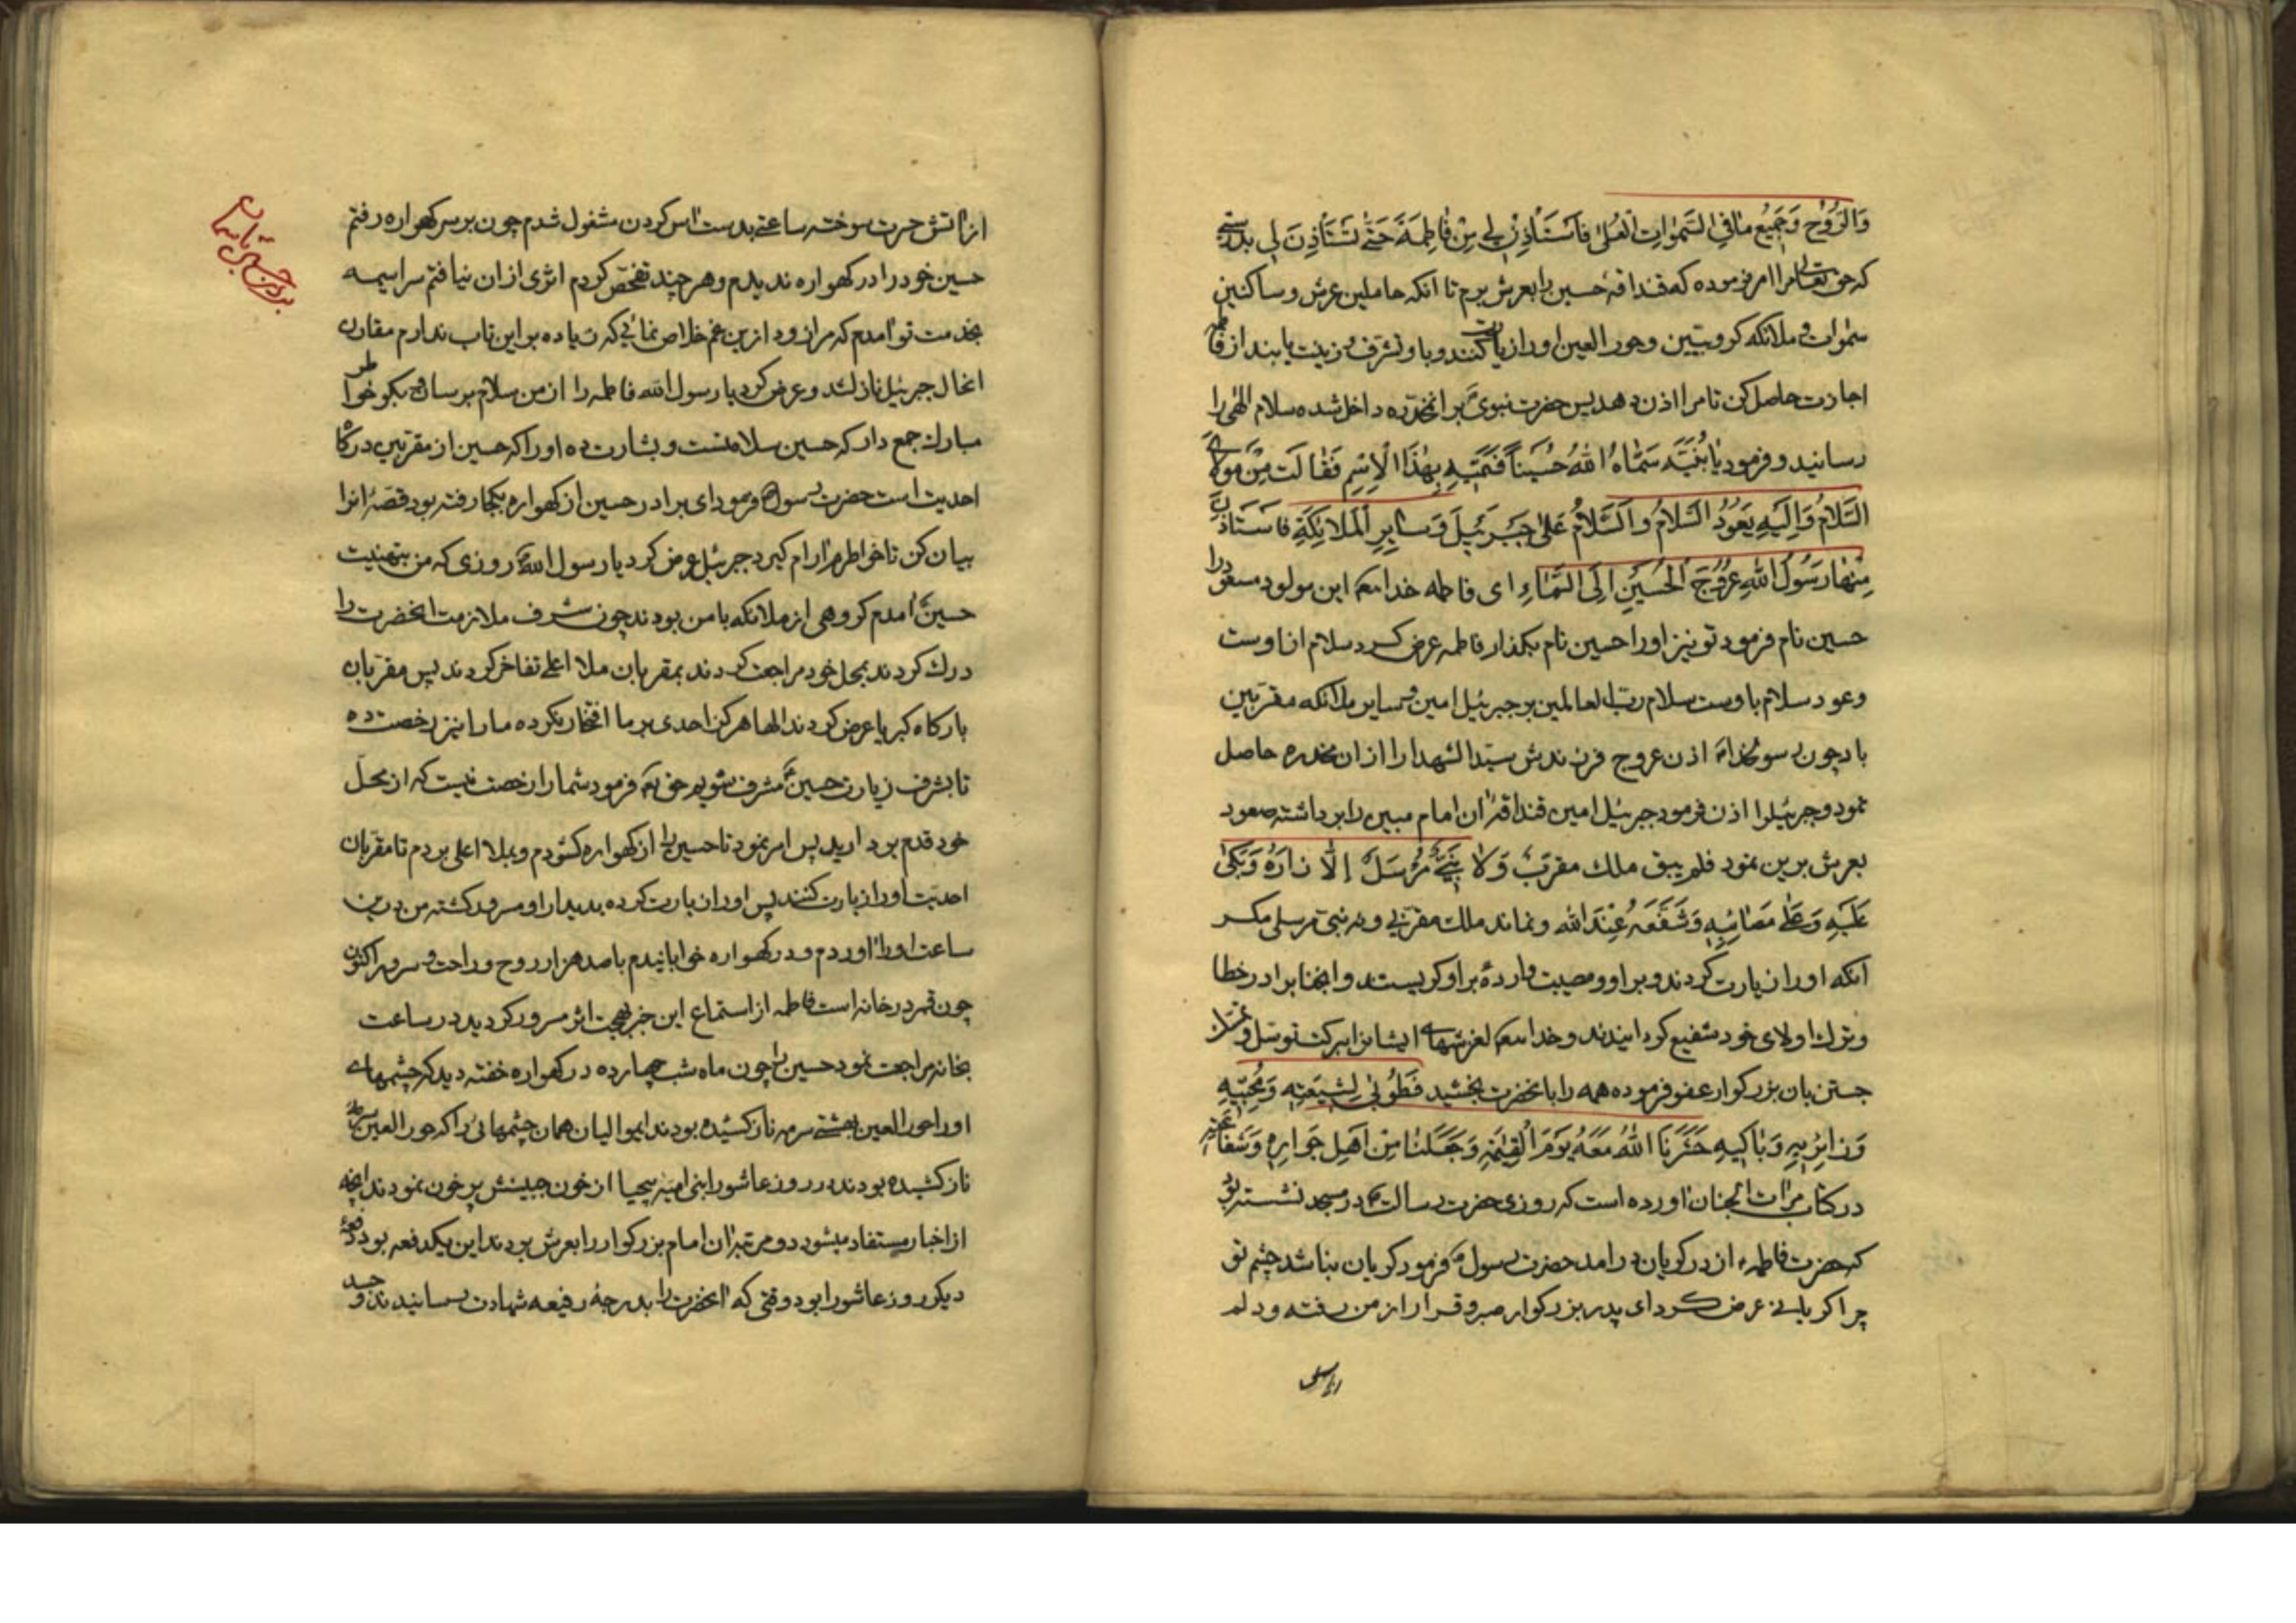 وَالرُّوْحِ وَجَمِيْعُ مٰا فِي السَّمٰوٰاتِ الْعُلىٰ فَاسْتَأْذِنْ لِي مِنْ فٰاطِمَةَ حَتّٰى تَسْتَأْذِنَ لِي بدرستي
که حق تعالی مرا امر فرموده که قنداقهٔ حسین را بعرش برم تا انکه حاملین عرش و ساکنین
سمٰوات و ملائکه کروبیین و حور العین او را زیارت کنند و باو تشرف و زینت یابند از فاطمه
اجازت حاصل کن تا مرا اذن دهد پس حضرت نبوی بر انمخدّره داخل شده سلام الهی را
رسانید و فرمود یٰا بُنَیَّه سَمّٰاهُ اللهُ حُسَیْناً فَسَمِّیْهِ بِهٰذَا الْاِسْمِ فَقٰالَتْ مِنْ مَوْلٰایَ
السَّلامُ وَاِلَیْهِ یَعُوْدُ السَّلامُ وَالسَّلامُ عَلیٰ جَبْرَئِیْلَ وَسٰایِرِ الْمَلائِکَةِ فَاسْتَاذَنَ
مِنْهٰا رَسُوْلُ اللهِ عُرُوْجَ الْحُسَیْنِ اِلَی السَّمٰاءِ ای فاطمه خدا این مولود مسعود را
حسین نام فرمود تو نیز او را حسین نام بگذار فاطمه عرض کرد سلام از اوست
و عود سلام باوست سلام رب العالمین بر جبرئیل امین و سایر ملائکه مقرّبین
باد چون رسولخدا اذن عروج فرزندش سیّد الشهدا را از ان مخدره حاصل
نمود و جبرئیلرا اذن فرمود جبرئیل امین قنداقهٔ ان امام مبین را برداشته صعود
بعرش برین نمود فلم یبق ملك مقرّبٌ وَلٰا نَبِیٌّ مُرْسَلٌ اِلّٰا زٰارَهُ وَبَکیٰ
عَلَیْهِ وَعَلیٰ مَصٰائِبِهِ وَشَفَّعَهُ عِنْدَ الله و نماند ملك مقرّبی و نه نبی مرسلی مگر
انکه او را زیارت کردند و بر او و مصیبت وارده بر او کریستند و ابجناب را در خطا
و ترك اولای خود شفیع کردانیدند و خدا لغزشهای ایشانرا ببرکت توسّل و تمسّك
جستن بان بزرکوار عفو فرموده همه را بانحضرت بخشید فَطُوْبیٰ لِشِیْعَتِهِ وَمُحِبّیْهِ
وَزٰائِرِیْهِ وَبٰاکِیْهِ حَشَرَنَا اللهُ مَعَهُ یَوْمَ الْقِیٰمَةِ وَجَعَلَنٰا مِنْ اَهْلِ جَوٰارِهِ وَشَفٰاعَتِهِ
در کتاب مرٰات الجنان اورده است که روزی حضرت رسالت در مسجد نشسته بود
که حضرت فاطمه از در کریان درامد حضرت رسول فرمود کریان مباشد چشم تو
چرا کریانی عرض کرد ای پدر بزرکوار صبر و قرار از من رفته و دلم
از اتش حسرت سوخته ساعتی بدست اس کردن مشغول شدم چون بر سر کهواره رفتم
حسین خود را در کهواره ندیدم و هر چند تفحّص کردم اثری از ان نیافتم سراسیمه
بخدمت تو امدم که مرا زود ازین غم خلاص نمائی که زیاده بر این تاب ندارم مقارن
انحال جبرئیل نازلشد و عرض کرد یا رسول الله فاطمه را از من سلام برسان و بکو خواطر
مبارك جمع دار که حسین سلامتست و بشارت ده او را که حسین از مقرّبین درکاه
احدیت است حضرت رسول فرمود ای برادر حسین از کهواره بکجا رفته بود قصّهٔ انرا
بیان کن تا خواطرم ارام کیرد جبرئیل عرض کرد یا رسول الله روزی که من بتهنیت
حسین امدم کروهی از ملائکه با من بودند چون شرف ملازمت انحضرت را
درك کردند بمحل خود مراجعت کردند بمقربان ملا اعلی تفاخر کردند پس مقرّبان
بارکاه کبریا عرض کردند الها هرکز احدی بر ما افتخار نکرده ما را نیز رخصت ده
تا بشرف زیارت حسین مشرف شویم حق فرمود شما را رخصت نیست که از محلّ
خود قدم بردارید پس امر نمود تا حسین را از کهواره کشودم و بملا اعلی بردم تا مقرّبان
احدیّت او را زیارت کنند پس او را زیارت کرده بدیدار او مسرور کشته من درین
ساعت او را اوردم و در کهواره خوابانیدم با صد هزار روح و راحت و سرور اکنون
چون قمر در خانه است فاطمه از استماع این خبر بهجت اثر مسرور کردید در ساعت
بخانه مراجعت نمود حسین را چون ماه شب چهارده در کهواره خفته دید که چشمهای
او را حور العین بهشتی سرمه ناز کشیده بودند ایموالیان همان چشمهائی را که حور العین سرمه
ناز کشیده بودند در روز عاشورا بنی امیه بیحیا از خون جبینش پر خون نمودند انچه
از اخبار مستفاد میشود دو مرتبه ان امام بزرکوار را بعرش بردند این یکدفعه بود دفعهٔ
دیکر روز عاشورا بود وقتی که انحضرت را بدرجهٔ رفیعه شهادت رسانیدند و جسد